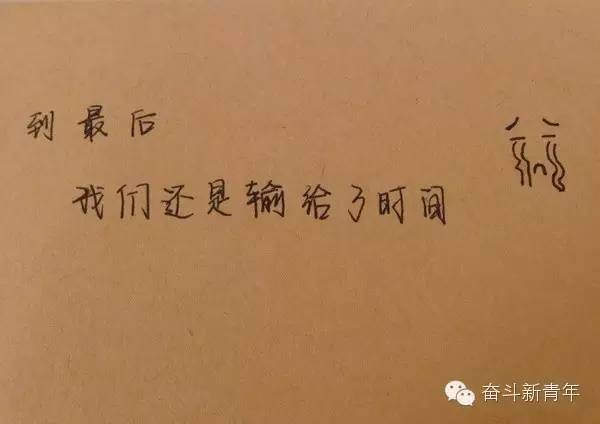 到最后
我们还是输给了时间
奋斗新青年